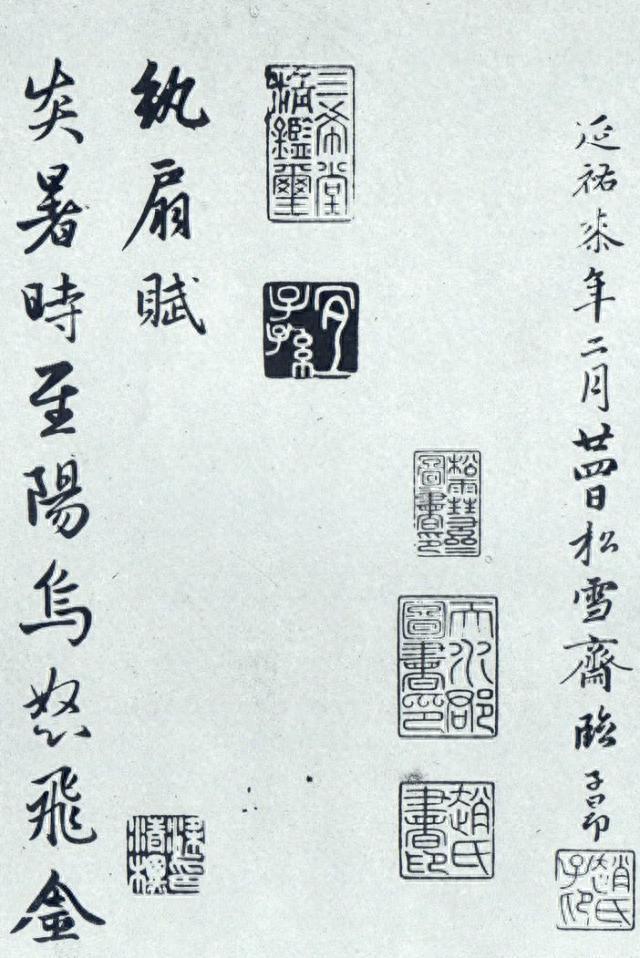 延祐柒年二月廿四日松雪齋臨子昂
趙氏子昂
松雪齋圖書印
天水郡圖書印
趙氏書印
三希堂精鑑璽
宜子孫
紈扇賦
炎暑時至陽烏怒飛金